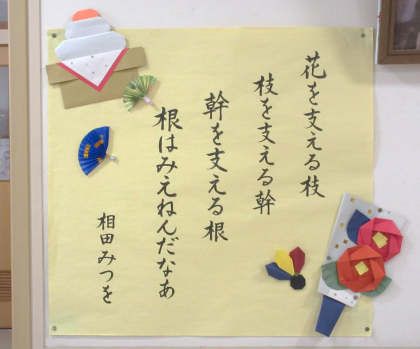 花を支える枝
枝を支える幹
幹を支える根
根はみえねんだなあ
相田みつを